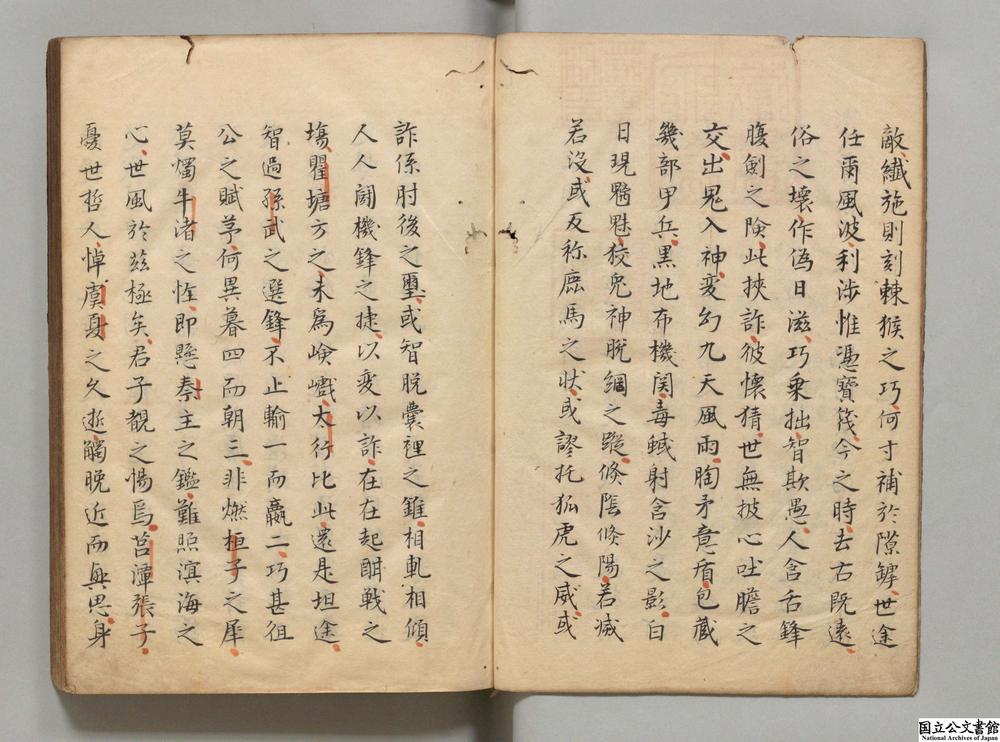 敵纎施則刻棘猴之巧何寸補於隙罅世途
任爾風波利涉惟憑寶筏今之時去古既遠
俗之壞作偽日滋巧乘拙智欺愚人含舌鋒
腹劍之險此挾詐彼懷猜世無披心吐膽之
交出鬼入神変幻九天風雨胸矛意盾包藏
幾部甲兵黒地布機関毒蜮射含沙之影白
日現魑魅狡兔神脫網之蹤倐陰倐陽若滅
若沒或反称鹿馬之状或謬托狐虎之威或
詐係肘後之璽或智脫囊裡之錐相軋相傾
人人鬪機鋒之捷以変以詐在在起酣戰之
塲瞿塘方之未爲嶮巇太行比此還是坦途
智過孫武之選鋒不止輸一而贏二巧甚狙
公之賦芧何異暮四而朝三非燃桓子之犀
莫燭牛渚之恠即懸秦主之鑑難照溟海之
心世風於茲極矣君子覩之惕焉苕潭張子
憂世哲人悼虞夏之久逝觸晚近而興思身
国立公文書館
National Archives of Japan